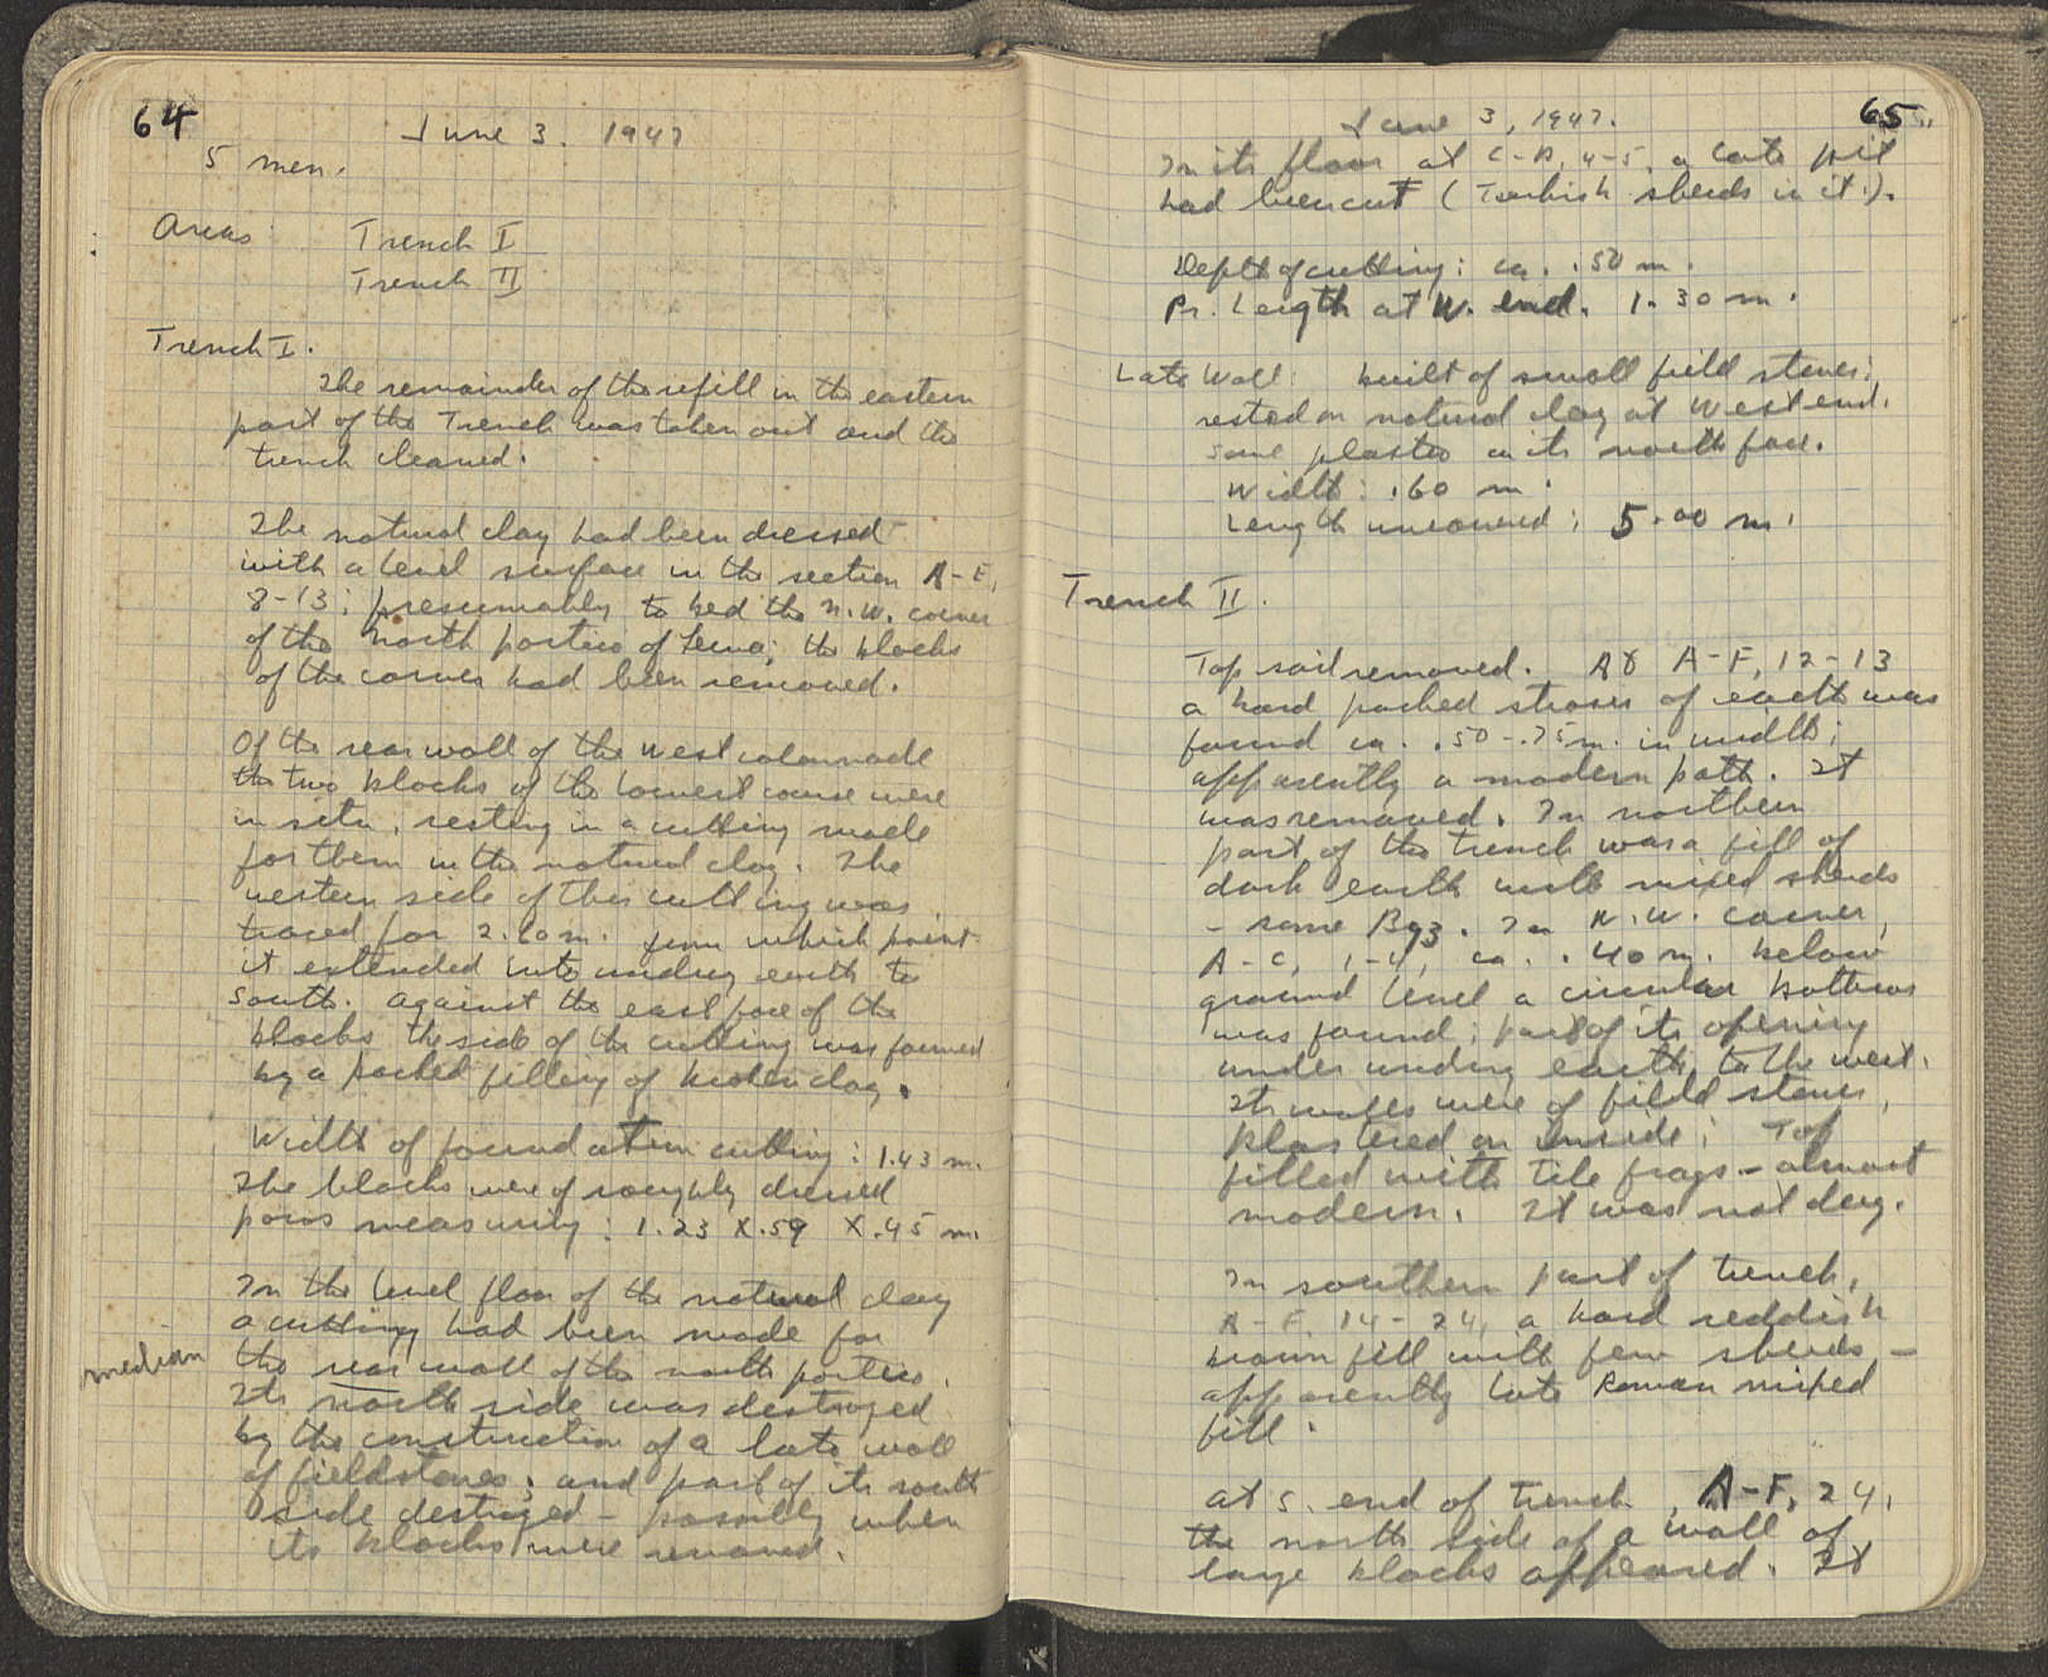 64
June 3. 1947
5 men.
Areas Trench I
Trench II
Trench I.
The remainder of the refill in the eastern
part of the Trench was taken out and the
trench cleaned.
The natural clay had been dressed
with a level surface in the section A-E,
8-13; presumably to bed the N.W. corner
of the North portico of ; the blocks
of the corner had been removed.
Of the rear wall of the west colonnade
the two blocks of the lowest course were
in situ, resting in a cutting made
for them in the natural clay. The
western side of this cutting was
traced for 2.60 m. from which point
it extended into undug earth to
south. Against the east face of the
blocks the side of the cutting was formed
by a packed filling of broken clay.
Width of foundation cutting: 1.43 m.
The blocks were of roughly dressed
poros measuring: 1.23 X .59 X .45 m.
In the level floor of the natural clay
a cutting had been made for
median
the rear wall of the north portico.
Its north side was destroyed
by the construction of a late wall
of fieldstones; and part of its south
side destroyed - possibly when
its blocks were removed.
65
June 3, 1947.
In its floor at C-D, 4-5, a late pit
had been cut (Turkish sherds in it).
Depth of cutting: ca. .50 m.
Pr. Length at W. end. 1.30 m.
Late Wall: built of small field stones;
rested on natural clay at West end.
Some plaster on its north face.
Width: .60 m.
Length uncovered: 5.00 m.
Trench II.
Top soil removed. At A-F, 12-13
a hard packed stroses of earth was
found ca. .50-.75 m. in width;
apparently a modern path. It
was removed. In northern
part of the trench was a fill of
dark earth with mixed sherds
- some Byz. In N.W. corner,
A-C, 1-4, ca. .40 m. below
ground level a circular bothros
was found; part of its opening
under undug earth to the west.
Its walls were of field stones,
plastered on inside; Top
filled with tile frags - almost
modern. It was not dug.
In southern part of trench,
A-F, 14-24, a hard reddish
brown fill with few sherds -
apparently late Roman mixed
fill.
At S. end of trench, A-F, 24,
the north side of a wall of
large blocks appeared. It